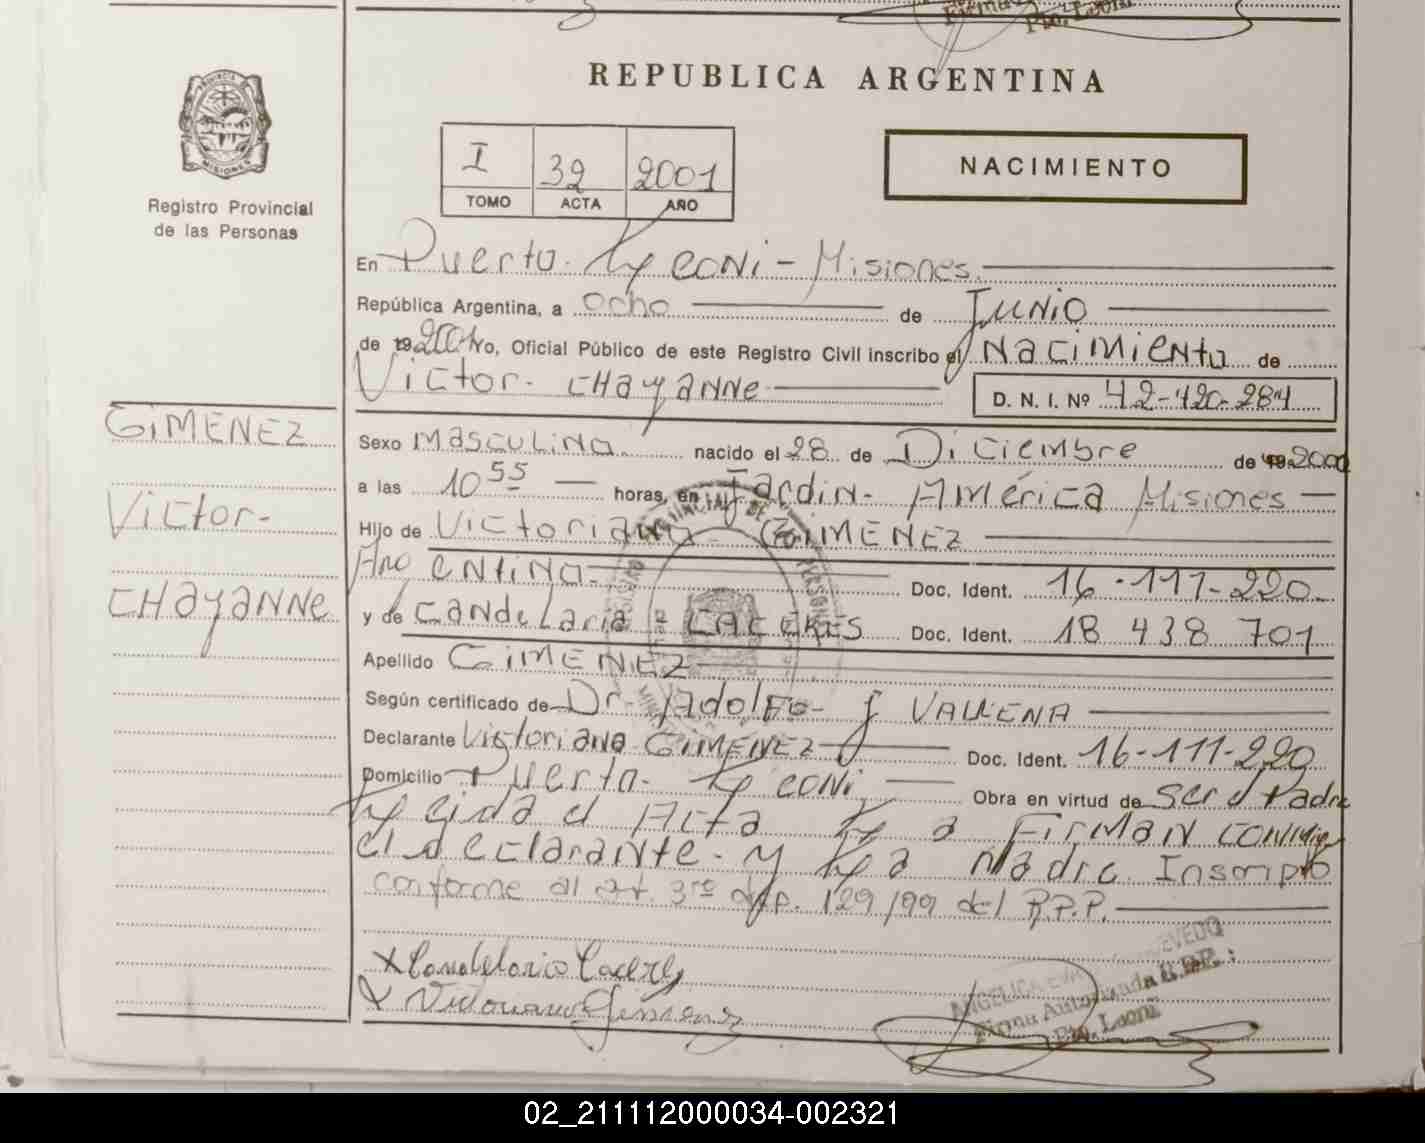 Pto. Leoni
REPUBLICA ARGENTINA
PROVINCIA DE
MISIONES
Registro Provincial
de las Personas
I 32 2001
TOMO ACTA AÑO
NACIMIENTO
En Puerto Leoni - Misiones
República Argentina, a ocho de Junio
de 2001 yo, Oficial Público de este Registro Civil inscribo el Nacimiento de
Victor CHayANNe D. N. I. Nº 42-420-284
GiMENEZ
Victor
CHayANNe
Sexo Masculino nacido el 28 de Diciembre de 2000
a las 10 55 horas, en Jardin América Misiones
Hijo de Victoriano GiMENEZ
Argentino Doc. Ident. 16-111-220
y de Candelaria CACERES Doc. Ident. 18 438 701
Apellido GiMENEZ
Según certificado de Dr. Adolfo J VALLENA
Declarante Victoriano GiMENEZ Doc. Ident. 16-111-220
Domicilio Puerto Leoni Obra en virtud de ser el Padre
Leida el Acta La FirMAN conmigo
el declarante y La Madre Inscripto
conforme al art. 3ro disp. 129/99 del R.P.P.
Candelaria Caceres
Victoriano Gimenez
ANGELICA
Firma Autorizada
Pto. Leoni
02_211112000034-002321